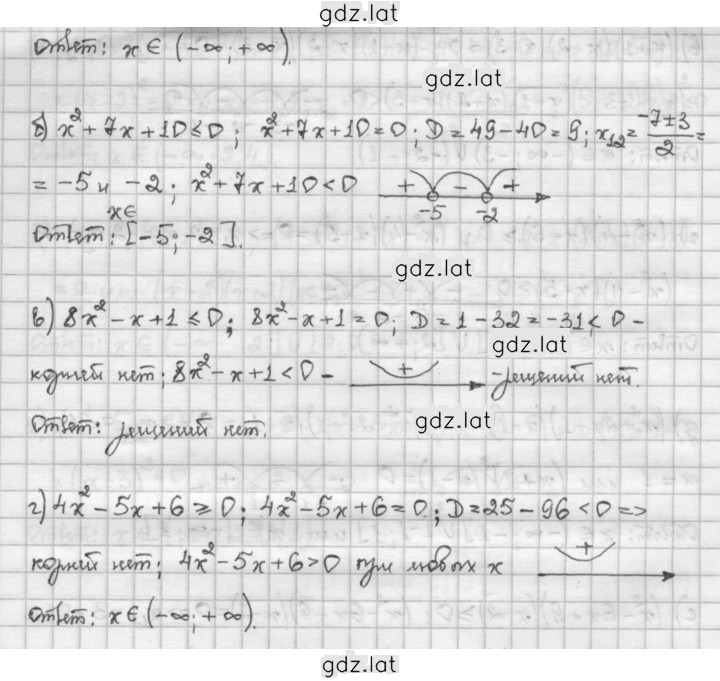 gdz.lat
Ответ: x ∈ (-∞; +∞).
gdz.lat
б) x² + 7x + 10 ≤ 0; x² + 7x + 10 = 0; D = 49 - 40 = 9; x₁₂ = (-7±3)/2 =
= -5 и -2; x² + 7x + 10 < 0 + - + -5 -2
Ответ: x∈ [-5; -2].
gdz.lat
в) 8x² - x + 1 ≤ 0; 8x² - x + 1 = 0; D = 1 - 32 = -31 < 0 -
gdz.lat
корней нет; 8x² - x + 1 < 0 - + - решений нет.
Ответ: решений нет.
gdz.lat
г) 4x² - 5x + 6 ≥ 0; 4x² - 5x + 6 = 0; D = 25 - 96 < 0 =>
корней нет; 4x² - 5x + 6 > 0 при любых x +
Ответ: x ∈ (-∞; +∞).
gdz.lat